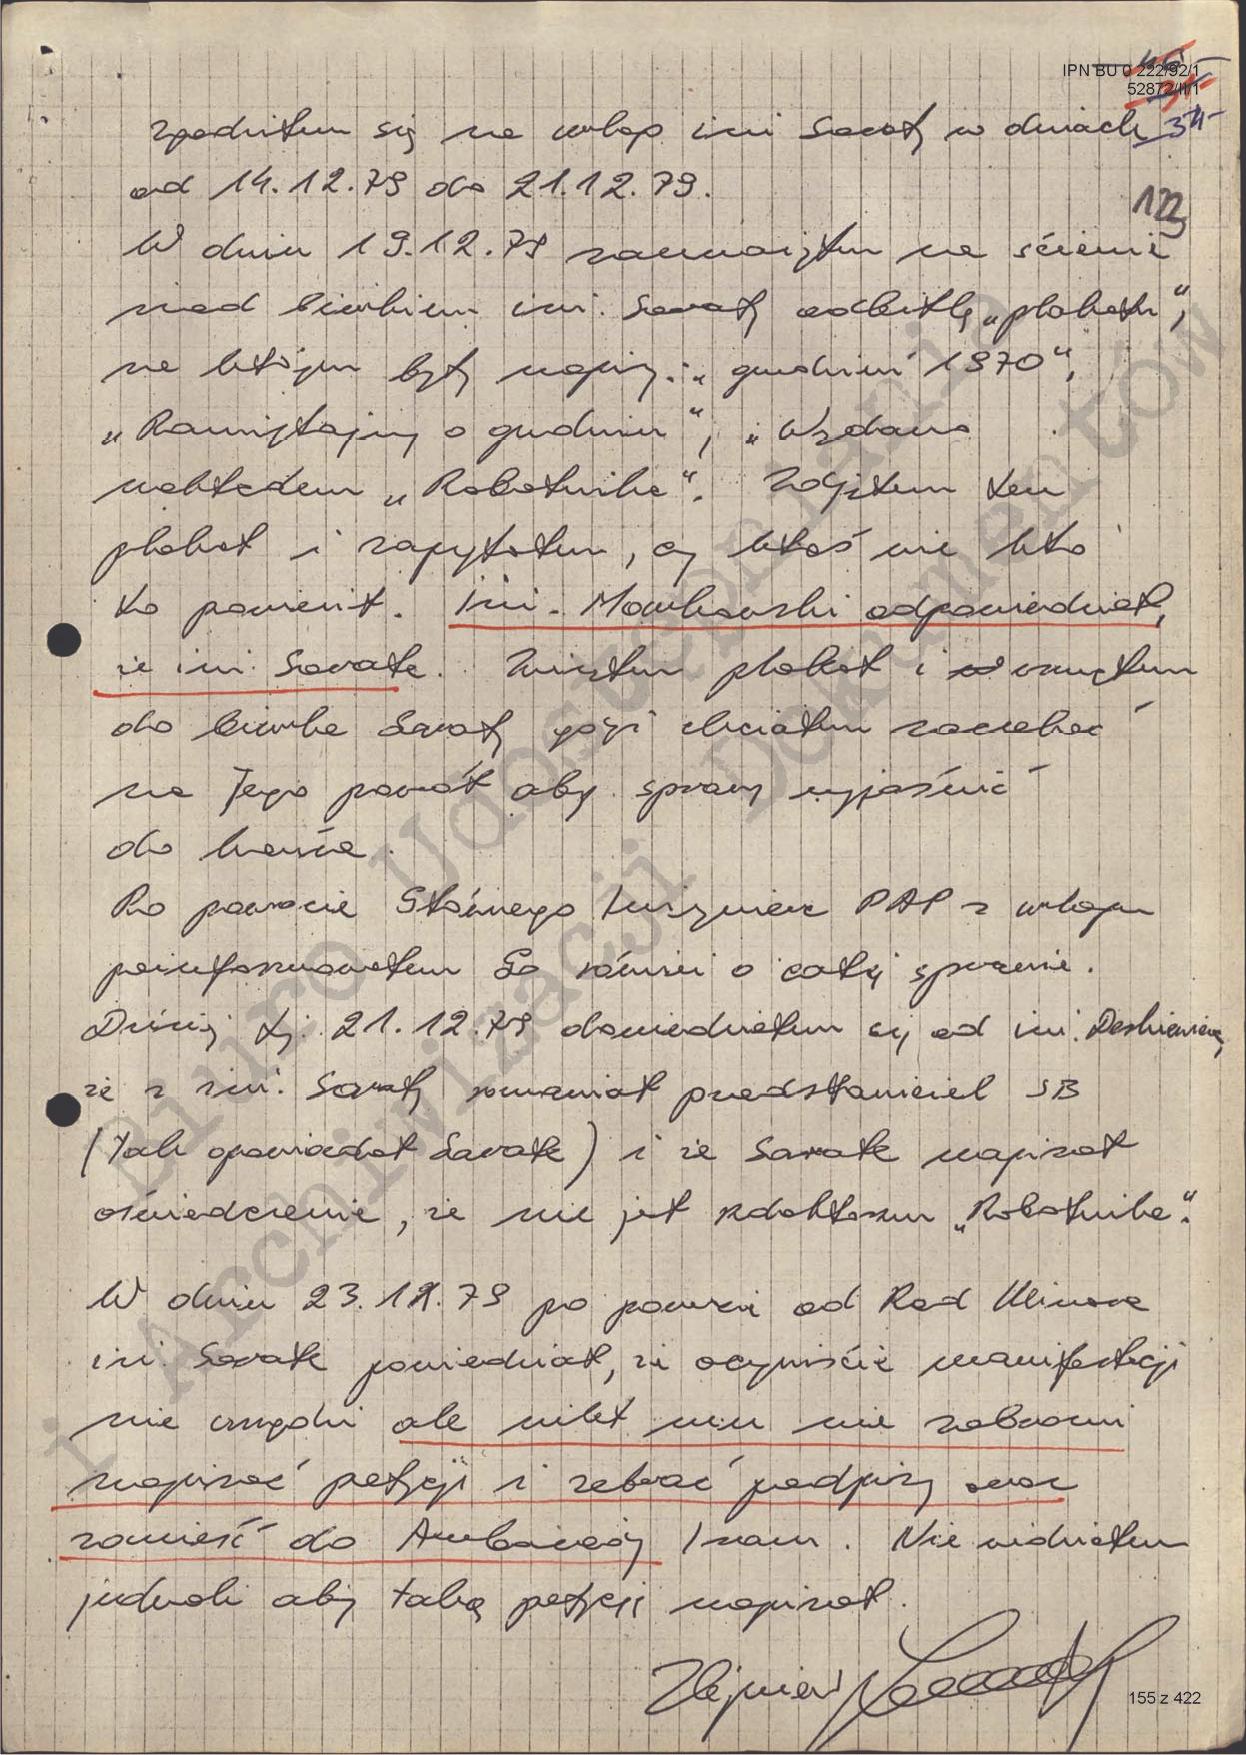 IPN BU 0 222/92/1
52872/II/1
34
zgodziłem się na urlop inż Saraty w dniach
od 14.12.79 do 21.12.79.
123
W dniu 19.12.79 zauważyłem na ścianie
nad biurkiem inż. Saraty odbitkę „plakatu”,
na którym były napisy: „grudzień 1970”,
„Pamiętajmy o grudniu”, „Wydano
nakładem „Robotnika”. Zdjąłem ten
plakat i zapytałem, czy ktoś wie kto
to powiesił. Inż. Mańkowski odpowiedział,
że inż. Sarata. Zwinąłem plakat i wsunąłem
do biurka Saraty gdyż chciałem zaczekać
na Jego powrót aby sprawę wyjaśnić
do końca.
Po powrocie Głównego Inżyniera PAP z urlopu
poinformowałem Go również o całej sprawie.
Dzisiaj tj. 21.12.79 dowiedziałem się od inż.
że z inż. Saratą rozmawiał przedstawiciel SB
(tak opowiadał Sarata) i że Sarata napisał
oświadczenie, że nie jest redaktorem „Robotnika”.
W dniu 23.11.79 po powrocie od Red
inż. Sarata powiedział, że oczywiście manifestacji
nie urządzi ale nikt mu nie zabroni
napisać petycji i zebrać podpisy oraz
zanieść do Ambasady Iranu. Nie widziałem
jednak aby taką petycję napisał.
Zbigniew
155 z 422
Biuro Udostępniania
i Archiwizacji Dokumentów